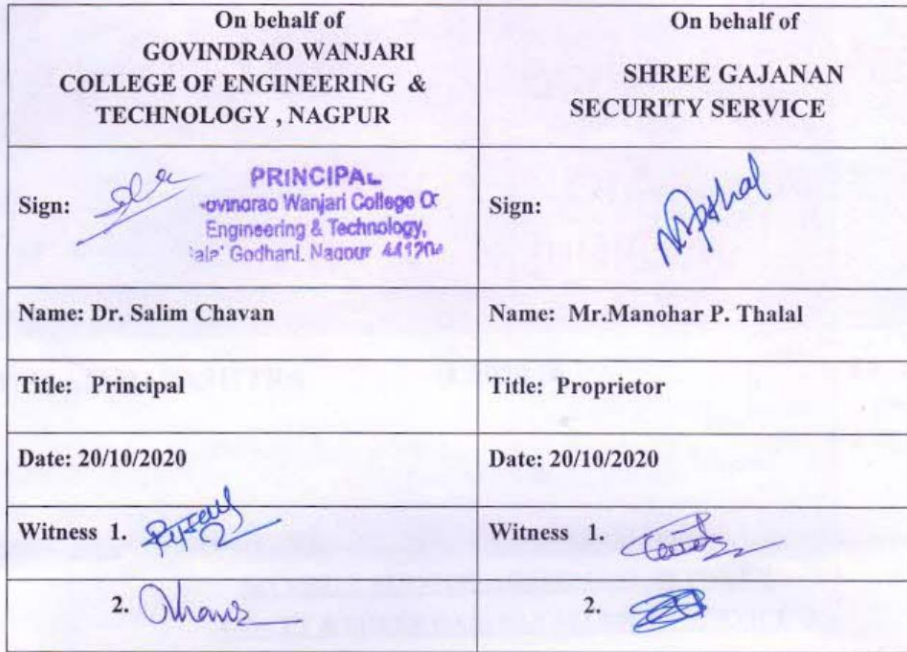 On behalf of
GOVINDRAO WANJARI
COLLEGE OF ENGINEERING &
TECHNOLOGY , NAGPUR
On behalf of
SHREE GAJANAN
SECURITY SERVICE
Sign:
PRINCIPAL
Wanjari College Of
Engineering & Technology,
Godhani. Nagpur
Sign:
Name: Dr. Salim Chavan
Name: Mr.Manohar P. Thalal
Title: Principal
Title: Proprietor
Date: 20/10/2020
Date: 20/10/2020
Witness 1.
Witness 1.
2.
2.